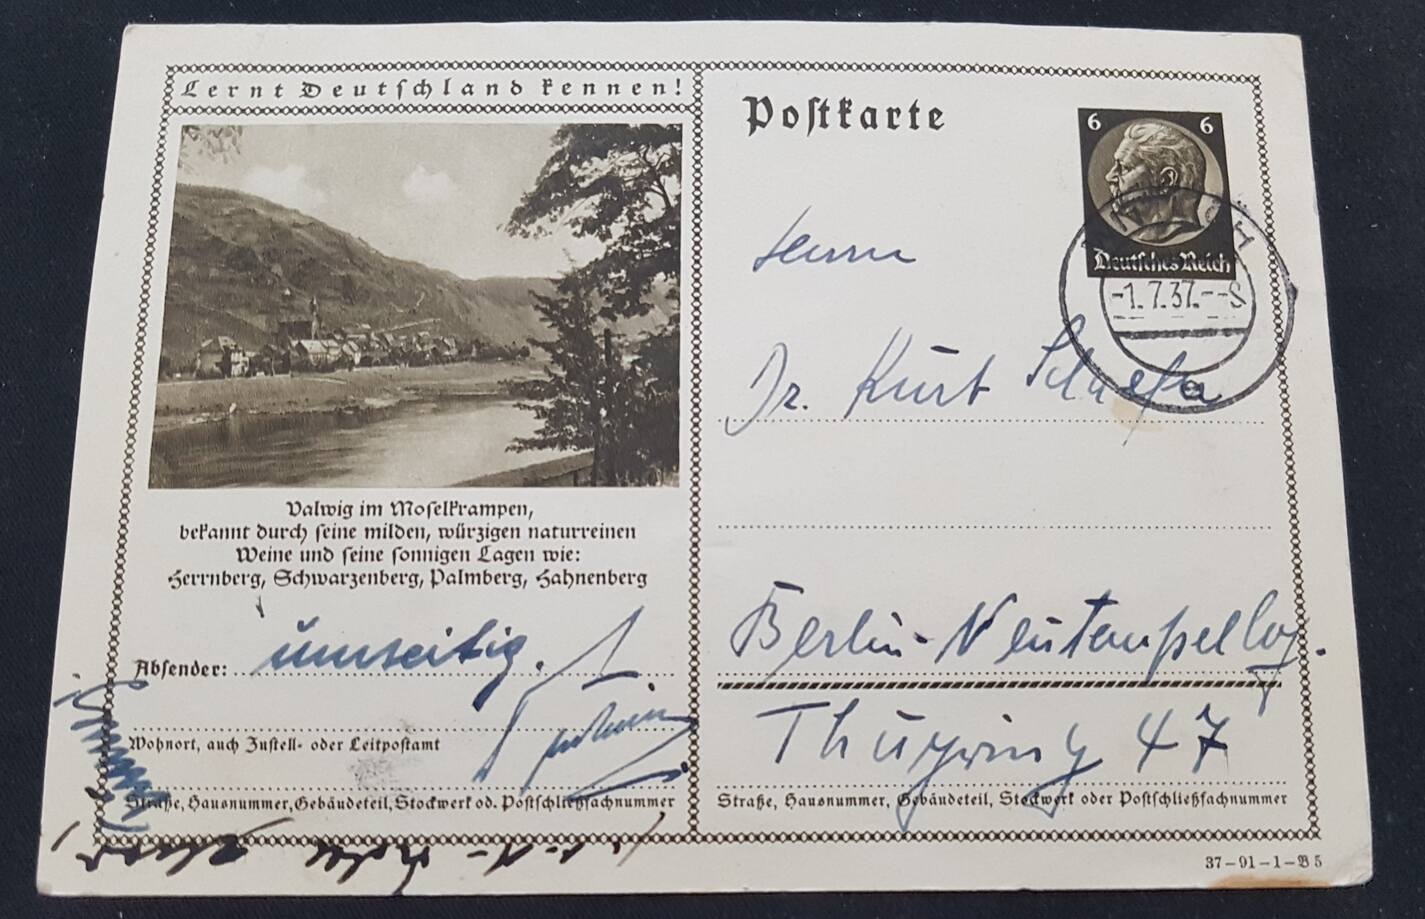 Lernt Deutschland kennen!
Valwig im Moselkrampen,
bekannt durch seine milden, würzigen naturreinen
Weine und seine sonnigen Lagen wie:
Herrnberg, Schwarzenberg, Palmberg, Hahnenberg
Absender: umseitig.
Wohnort, auch Zustell- oder Leitpostamt
Straße, Hausnummer, Gebäudeteil, Stockwerk od. Postschließfachnummer
Postkarte
6 6
Deutsches Reich
-1.7.37.--8
Herrn
Dr. Kurt Schaefer
Berlin-Neutempelhof.
Thüring 47
Straße, Hausnummer, Gebäudeteil, Stockwerk oder Postschließfachnummer
37-91-1-B5